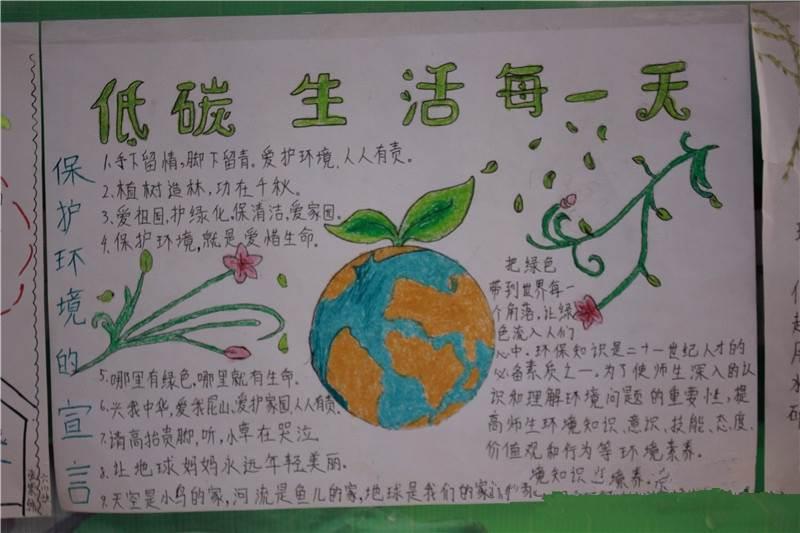 低碳生活每一天
保护环境的宣言
1.手下留情,脚下留青。爱护环境,人人有责。
2.植树造林,功在千秋。
3.爱祖国,护绿化,保清洁,爱家园。
4.保护环境,就是爱惜生命。
5.哪里有绿色,哪里就有生命。
6.兴我中华,爱我昆山,爱护家园,人人有责。
7.请高抬贵脚,听,小草在哭泣
8.让地球妈妈永远年轻美丽。
9.天空是小鸟的家,河流是鱼儿的家,地球是我们的家
把绿色
带到世界每一
个角落,让绿
色流入人们
心中。环保知识是二十一世纪人才的
必备素质之一。为了使师生深入的认
识和理解环境问题的重要性,提
高师生环境知识、意识、技能、态度、
价值观和行为等环境素养。
境知识